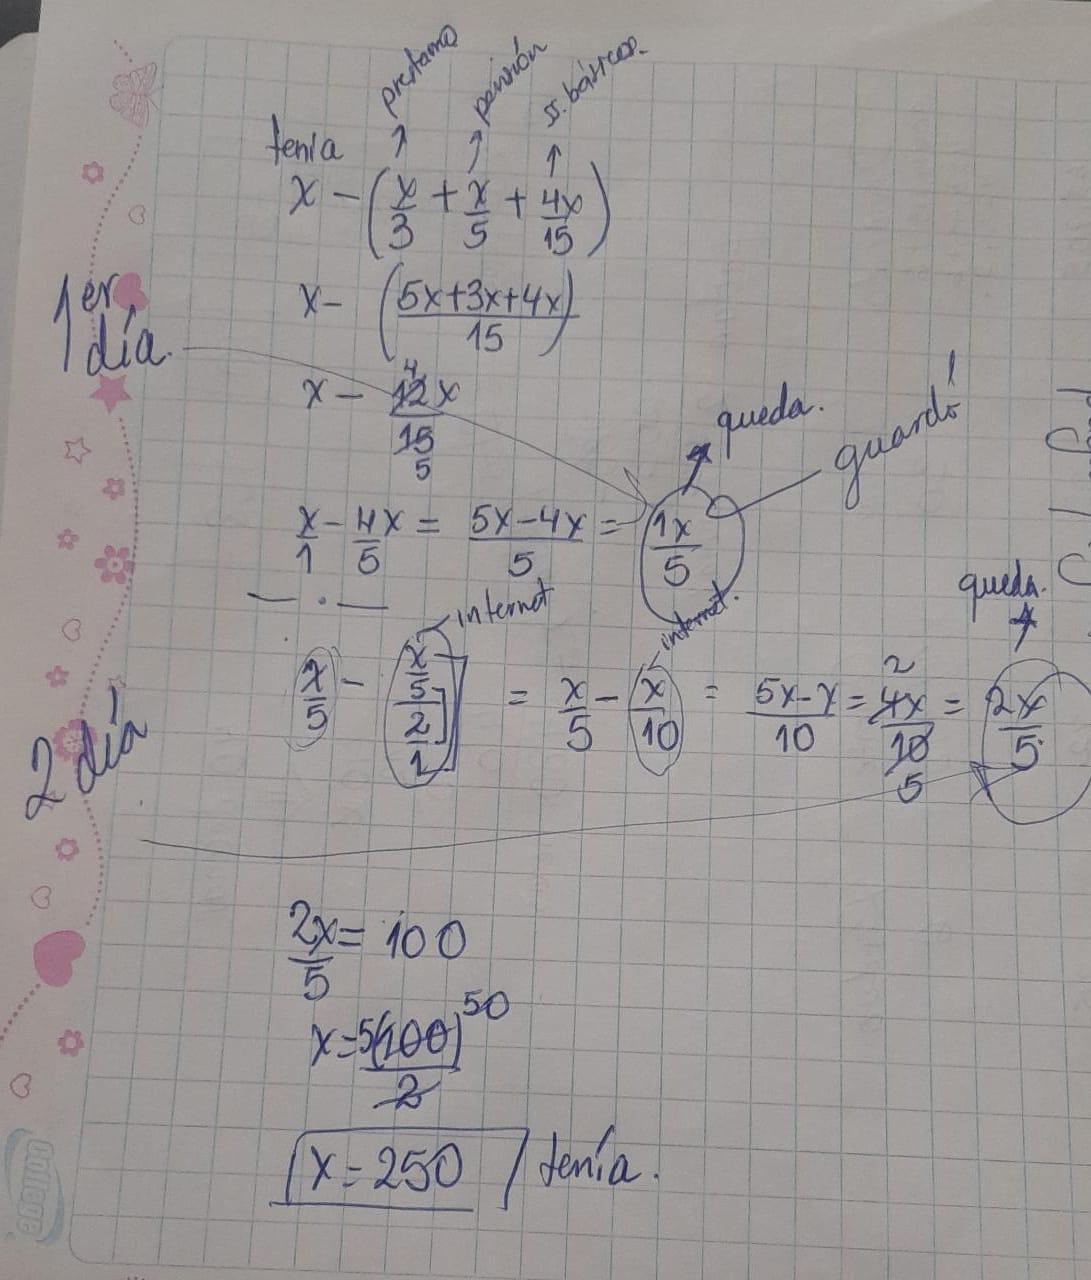 préstamo pensión ss. básicos.
tenía
x - (x/3 + x/5 + 4x/15)
1er día.
x - (5x+3x+4x)/15
x - 12x/15 4 5
queda.
guardó
x/1 - 4x/5 = 5x-4x/5 = 1x/5
internet
internet.
queda.
2 día
x/5 - x/5/2/1 = x/5 - x/10 = 5x-x/10 = 4x/10 2 5 = 2x/5
2x/5 = 100
x = 5(100)/2 50
x = 250 tenía.
college